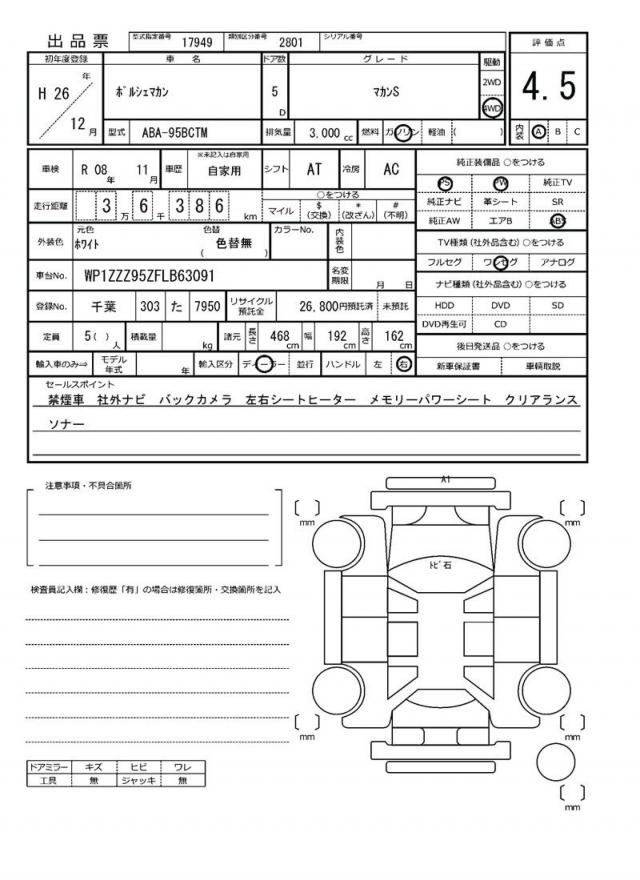 出品票 型式指定番号 17949 類別区分番号 2801 シリアル番号
初年度登録 車名 ドア数 グレード 駆動 評価点
H 26 年 12 月 ポルシェマカン 5 D マカンS 2WD 4WD 4.5
型式 ABA-95BCTM 排気量 3,000 cc 燃料 ガソリン 軽油 ( ) 内装 A B C
車検 R 08 年 11 月 車歴 ※未記入は自家用 自家用 シフト AT 冷房 AC
純正装備品 ○をつける
PS PW 純正TV
走行距離 3 万 6 千 3 8 6 km ○をつける
マイル $ (交換) * (改ざん) # (不明)
純正ナビ 革シート SR
純正AW エアB ABS
外装色 元色 ホワイト 色替 ( 色替無 ) カラーNo. 内装色
TV種類 (社外品含む) ○をつける
フルセグ ワンセグ アナログ
車台No. WP1ZZZ95ZFLB63091 名変期限 月 日
ナビ種類 (社外品含む) ○をつける
登録No. 千葉 303 た 7950 リサイクル預託金 26,800円預託済 未預託
HDD DVD SD
DVD再生可 CD
定員 5 ( ) 人 積載量 kg 諸元 長さ 468 cm 幅 192 cm 高さ 162 cm
後日発送品 ○をつける
輸入車のみ⇒ モデル年式 年 輸入区分 ディーラー 並行 ハンドル 左 右
新車保証書 車輌取説
セールスポイント
禁煙車 社外ナビ バックカメラ 左右シートヒーター メモリーパワーシート クリアランス
ソナー
注意事項・不具合箇所
検査員記入欄：修復歴「有」の場合は修復箇所・交換箇所を記入
A1
〔 〕 mm
〔 〕 mm
トビ石
〔 〕 mm
〔 〕 mm
〔 〕 mm
ドアミラー キズ ヒビ ワレ
工具 無 ジャッキ 無